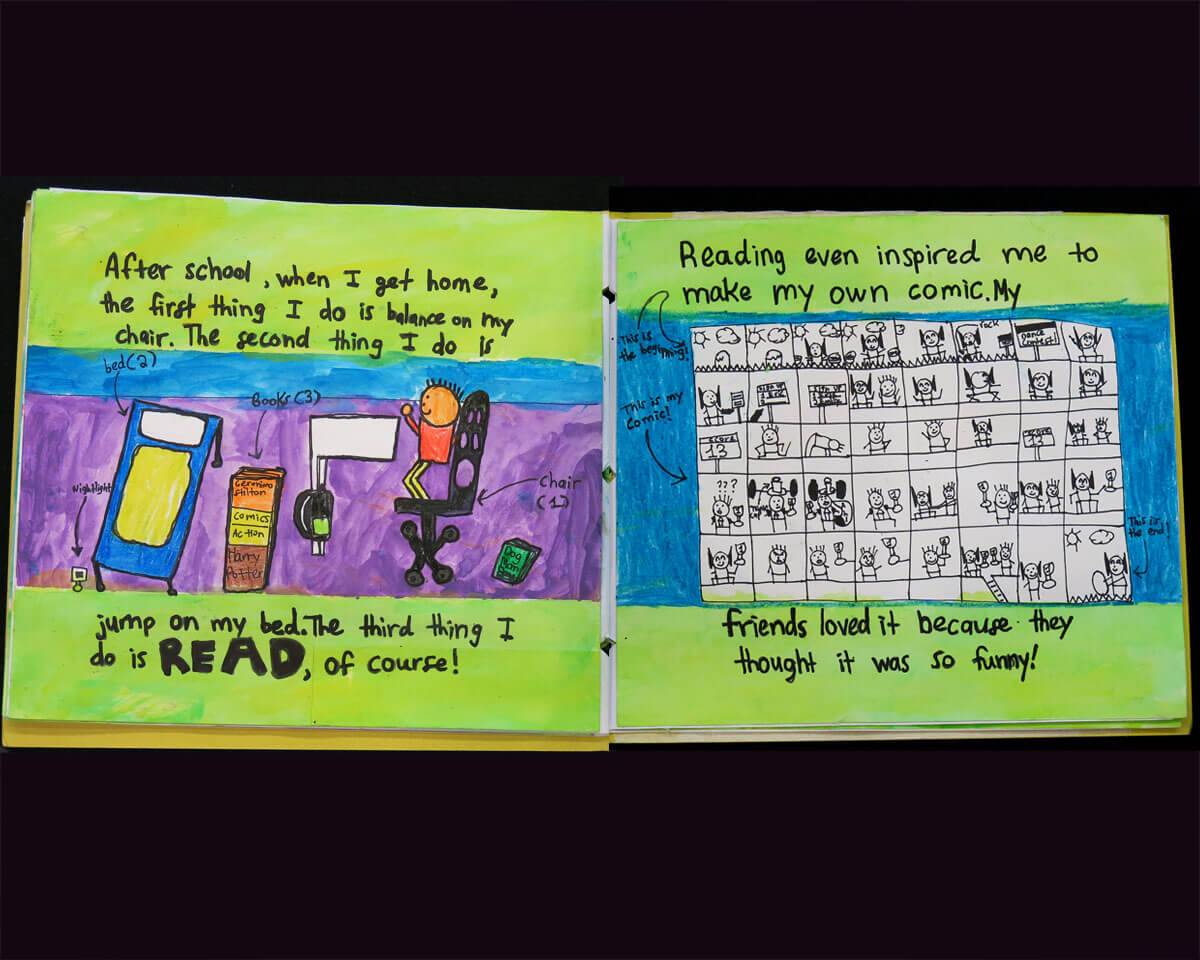 After school, when I get home,
the first thing I do is balance on my
chair. The second thing I do is
bed(2)
Books(3)
Nightlight
Geronimo
Stilton
Comics
Action
Harry
Potter
Chair
(1)
Dog
Man
jump on my bed. The third thing I
do is READ, of course!
Reading even inspired me to
make my own comic. My
This is
the beginning!
This is my
Comic!
rock
Dance
Contest!
SCORE
13
SCORE
13
???
This is
the end!
friends loved it because they
thought it was so funny!